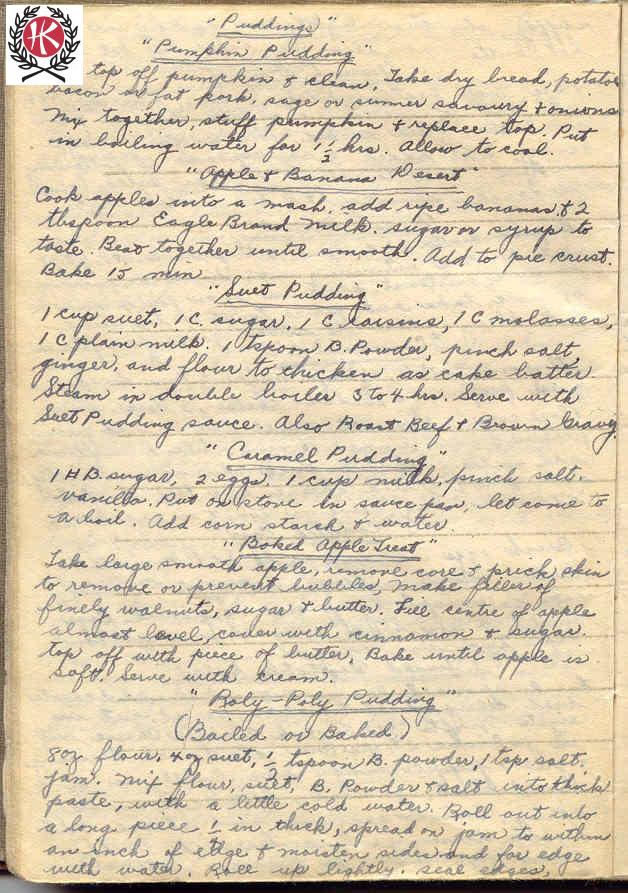 HK
"Puddings"
"Pumpkin Pudding"
top off pumpkin & clean, Take dry bread, potatoe
bacon or fat pork, sage or summer savoury & onions
Mix together, stuff pumpkin & replace top. Put
in boiling water for 1 1/2 hrs. Allow to cool.
"Apple & Banana Desert"
Cook apples into a mash. add ripe bananas & 2
tbspoon Eagle Brand Milk. sugar or syrup to
taste. Beat together until smooth. Add to pie crust.
Bake 15 min
"Suet Pudding"
1 cup suet, 1 C. sugar, 1 C raisins, 1 C molasses,
1 C plain milk. 1 tspoon B. Powder, pinch salt,
ginger, and flour to thicken as cake batter.
Steam in double boiler 3 to 4 hrs. Serve with
Suet Pudding sauce. Also Roast Beef & Brown Gravy
"Caramel Pudding"
1 H B. sugar, 2 eggs, 1 cup milk, pinch salt.
vanilla. Put on stove in sauce pan, let come to
a boil. Add corn starch & water.
"Baked Apple Treat"
Take large smooth apple, remove core & prick skin
to remove or prevent bubbles, Make filler of
finely walnuts, sugar & butter. Fill centre of apple
almost level, cover with cinnamon & sugar.
top off with piece of butter, Bake until apple is
soft. Serve with cream.
"Roly-Poly Pudding"
(Boiled or Baked)
8 oz flour, 4 oz suet, 1/2 tspoon B. powder, 1 tsp salt.
jam. Mix flour, suet, B. Powder & salt into thick
paste, with a little cold water. Roll out into
a long piece in thick, spread on jam to within
an inch of edge & moisten sides and far edge
with water. Roll up lightly. seal edges,